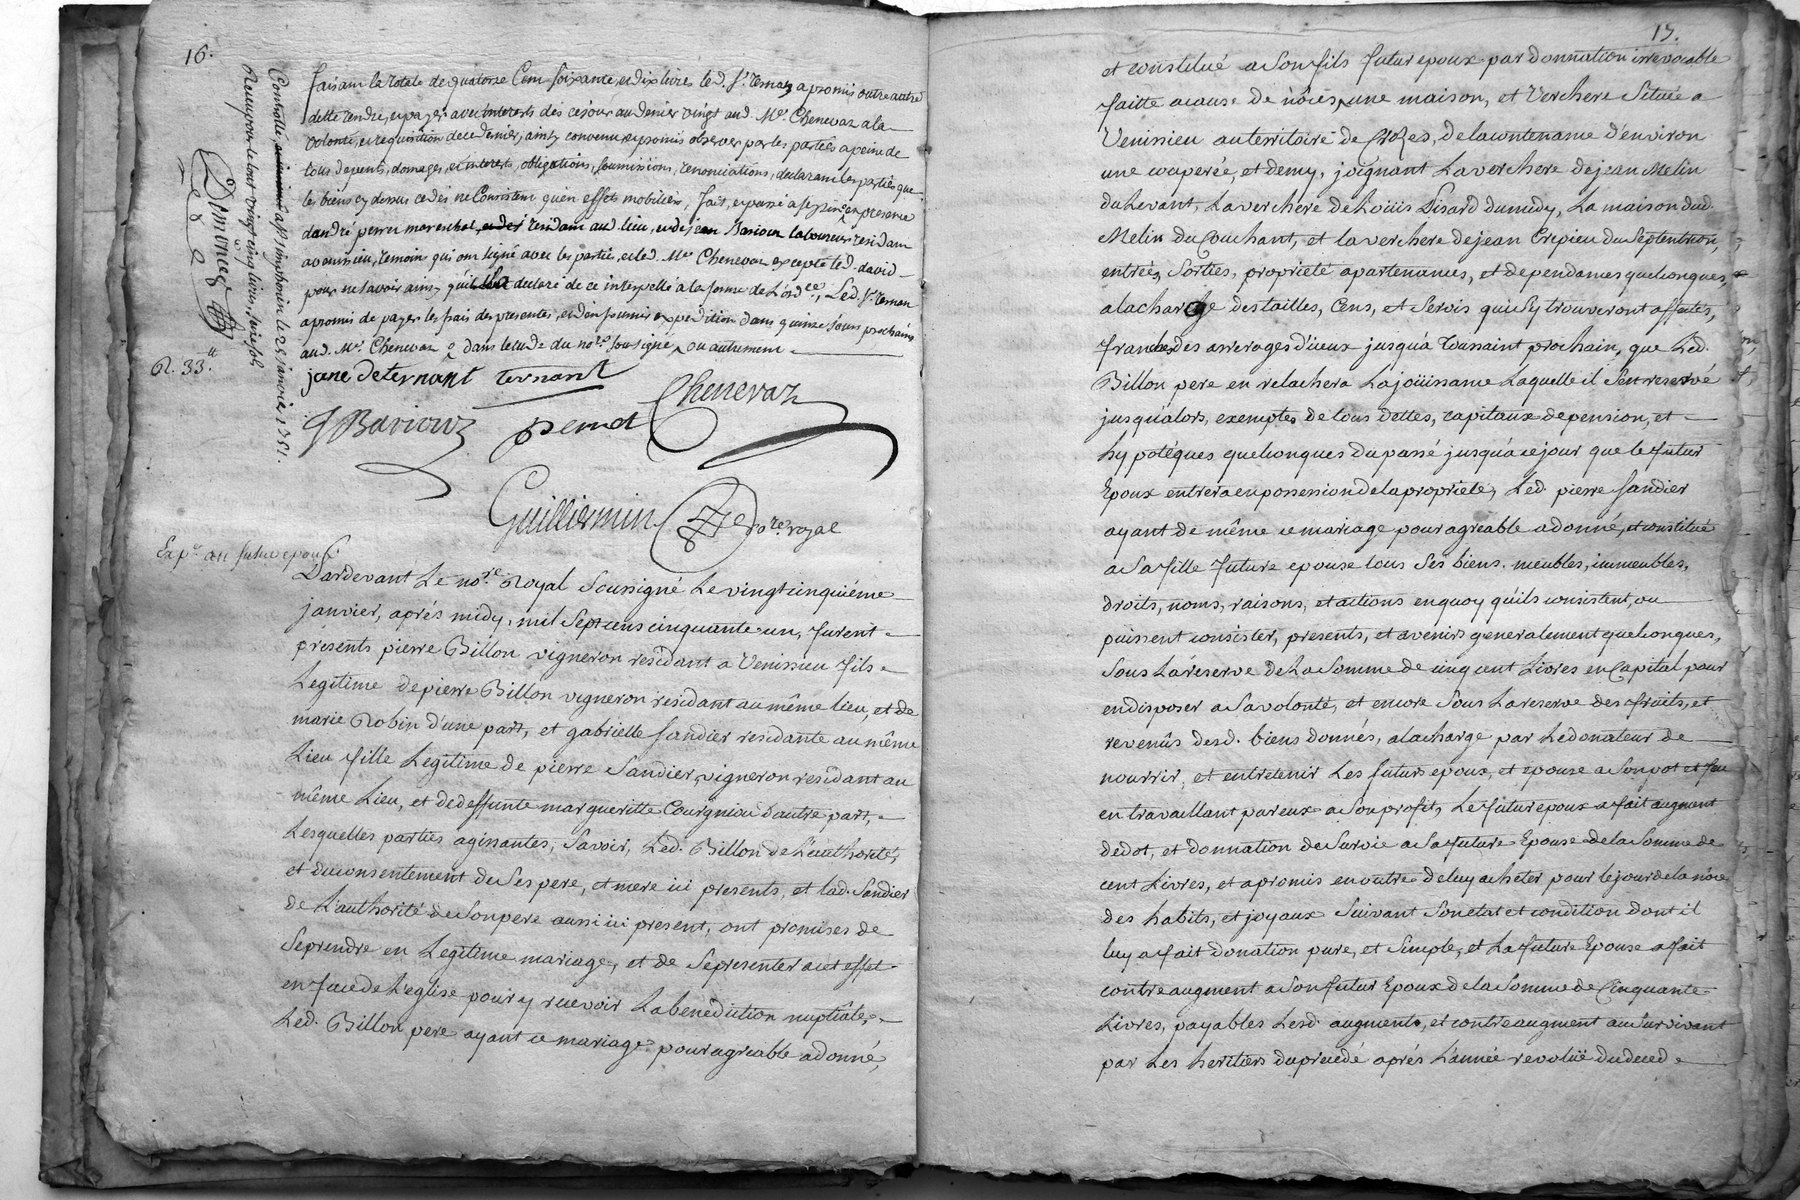 16.
faisant le totale de quatorze Cent soixante, et dix livres led. Sr. ternan a promis outre autre
dette rendre, et payer avec interests dés ce jour au denier vingt aud. Mr. Chenevaz a la
volonté, et requisition de ce dernier, ainsy convenu, et promis observer par les parties a peine de
tous depents, domages, et interests, obligations, soumissions, renonciations, declarant les parties que
les biens cy dessus cedés ne Consistent qu'en effets mobiliers, fait, et passé a en presence
d'andré perret mareschal, residant aud. lieu, et de jean Bariouz laboureur residant
a venissieu, temoins qui ont signé avec les parties, et led. Mr. Chenevaz excepté led. david
pour ne savoir ainsy qu'il a declaré de ce interpellé a la forme de L'ordce., Led. Sr. ternan
a promis de payer les frais des presentes, et d'en fournir expedition dans quinze jours prochains
aud. Mr. Chenevaz dans l'etude du nore. soussigné ou autrement
jane de ternant ternant
Chenevaz
J Bariouz perret
Guilliermin nore. royal
Controllé a st simphorin le 25 janvier 1751.
Reçu pour le tout vingt cinq livres, seize sols
Dimonces
R. 33.tt
Expé. au futur epoux
Pardevant Le nore. Royal Soussigné Le vingtcinquiéme
janvier, aprés midy, mil Sept cens cinquante un, furent
presents pierre Billon vigneron residant a Venissieu fils
Legitime de pierre Billon vigneron residant au même lieu, et de
marie Robin d'une part, et gabrielle Sandier residante au même
Lieu fille Legitime de pierre Sandier, vigneron residant au
même Lieu, et de deffunte margueritte Courgniou d'autre part,
Lesquelles parties agissantes, Savoir, Led. Billon de L'authorité,
et du consentement de Ses pere, et mere ici presents, et lad. Sandier
de L'authorité de Son pere aussi ici present, ont promises de
Se prendre en Legitime mariage, et de Se presenter a cet effet
en face de L'eglise pour y recevoir La benediction nuptiale,
Led. Billon pere ayant ce mariage pour agreable a donné,
et constitué a Son fils futur epoux par donnation irrevocable
faitte a cause de nôces, une maison, et Verchere Situeé a
Venissieu au territoire de Crozes, de la contenance d'environ
une couperée, et demy, joignant La verchere de jean Melin
du Levant, La verchere de Loüis Sisard du midy, La maison dud.
Melin du Couchant, et la verchere de jean Crepieu du Septentrion,
entrées, Sorties, proprieté apartenances, et dependances quelconques,
a la charge des tailles, Cens, et Servis qui S'y trouveront affectés,
franches des arrerages d'iceux jusqu'á toussaint prochain, que Led.
Billon pere en relachera La joüissance Laquelle il S'en reservé
jusqu'alors, exemptes de tous dettes, capitaux de pension, et
hypotéques quelconques du passé jusqu'á ce jour que le futur
Epoux entrera en possession de la proprieté, Led. pierre Sandier
ayant de même ce mariage pour agreable a donné, et constitué
a Sa fille future epouse tous Ses biens. meubles, immeubles,
droits, noms, raisons, et actions en quoy qu'ils consistent, ou
puissent consister, presents, et avenirs generalement quelconques,
Sous La reserve de La Somme de cinq cent Livres en Capital pour
en disposer a Sa volonté, et encore Sous La reserve des fruits, et
revenûs desd. biens donnés, a la charge par Le donateur de
nourrir, et entretenir Les futurs epoux, et epouse a Son pot et feu
en travaillant par eux a Son profit, Le futur epoux a fait augment
de dot, et donnation de Survie a Sa future Epouse de la Somme de
cent Livres, et a promis en outre de luy acheter pour le jour de la nôce
des habits, et joyaux Suivant Son etat et condition dont il
luy a fait donation pure, et Simple, et La future Epouse a fait
contre augment a Son futur Epoux de la Somme de Cinquante
Livres, payables Lesd. augments, et contre augment au Survivant
par Les heritiers du precedé aprés L'année revoluë du deced